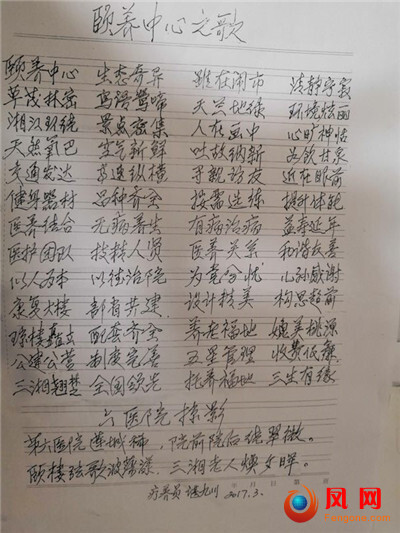 颐养中心之歌
颐养中心 生态奇异 虽在闹市 清静宁寂
草茂林密 鸟语莺啼 天兰地绿 环境炫丽
湘江环绕 景点密集 人在画中 心旷神怡
天然氧巴 空气新鲜 吐故纳新 如饮甘泉
交通发达 高速纵横 寻亲访友 近在眼前
健身器材 品种齐全 按需选练 提升体能
医养结合 无病养生 有病治病 益寿延年
医护团队 技精人贤 医养关系 和谐友善
以人为本 以德治院 为党分忧 心动感谢
康复大楼 部省共建 设计精美 构思超前
琼楼矗立 配套齐全 养老福地 媲美桃源
公建公营 制度完善 五星管理 收费低廉
三湘翘楚 全国领先 托养福地 三生有缘
六医院掠影
第六医院莲城种，院前院后绕翠微。
颐楼弦歌波荡漾，三湘老人焕夕晖。
疗养员 2017.3.
年 月 日
凤网
Fengone.com